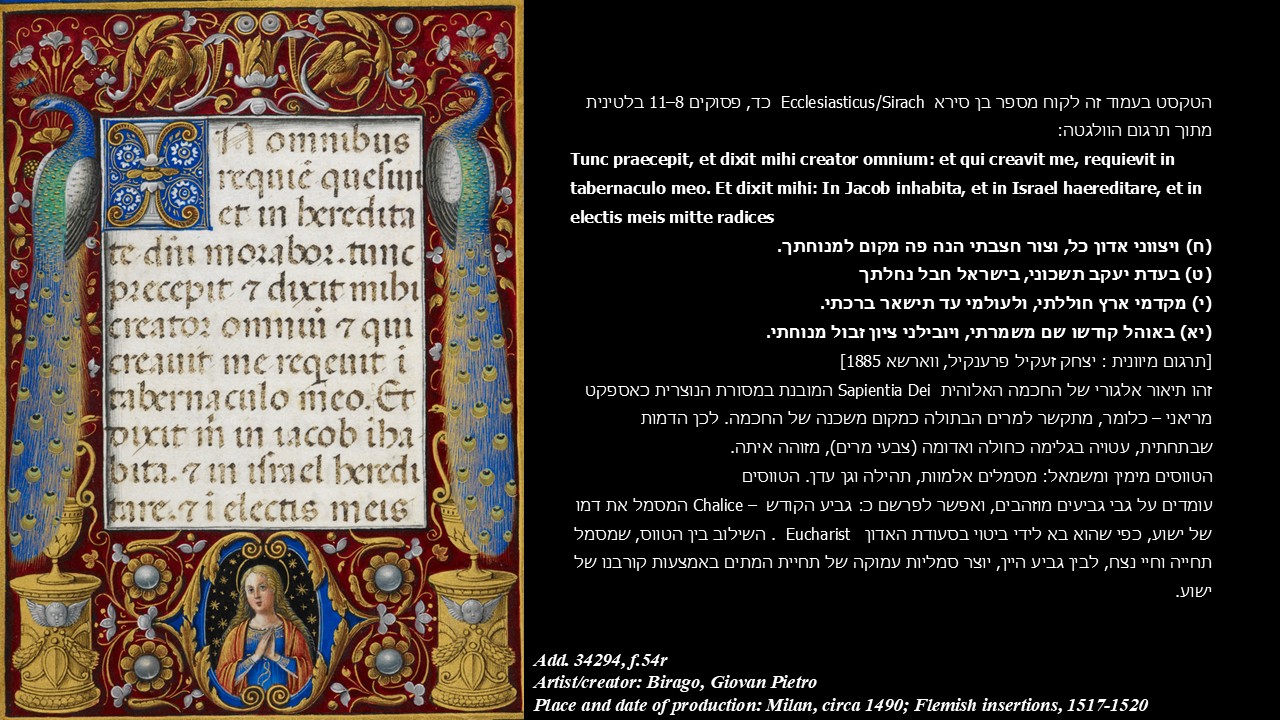 In omnibus
requiē quesiui
et in heredita
te dn̄i morabor. tunc
precepit ⁊ dixit mihi
creator omniū ⁊ qui
creauit me reqeuit ī
tabernaculo meo. Et
dixit m̄ in iacob iha-
bita. ⁊ in israel heredi
tare. ⁊ ī electis meis
הטקסט בעמוד זה לקוח מספר בן סירא Ecclesiasticus/Sirach כד, פסוקים 8–11 בלטינית
מתוך תרגום הוולגטה:
Tunc praecepit, et dixit mihi creator omnium: et qui creavit me, requievit in
tabernaculo meo. Et dixit mihi: In Jacob inhabita, et in Israel haereditare, et in
electis meis mitte radices
(ח) ויצווני אדון כל, וצור חצבתי הנה פה מקום למנוחתך.
(ט) בעדת יעקב תשכוני, בישראל חבל נחלתך
(י) מקדמי ארץ חוללתי, ולעולמי עד תישאר ברכתי.
(יא) באוהל קודשו שם משמרתי, ויובילני ציון זבול מנוחתי.
[תרגום מיוונית : יצחק זעקיל פרענקיל, ווארשא 1885]
זהו תיאור אלגורי של החכמה האלוהית Sapientia Dei המובנת במסורת הנוצרית כאספקט
מריאני – כלומר, מתקשר למרים הבתולה כמקום משכנה של החכמה. לכן הדמות
שבתחתית, עטויה בגלימה כחולה ואדומה (צבעי מרים), מזוהה איתה.
הטווסים מימין ומשמאל: מסמלים אלמוות, תהילה וגן עדן. הטווסים
עומדים על גבי גביעים מוזהבים, ואפשר לפרשם כ: גביע הקודש – Chalice המסמל את דמו
של ישוע, כפי שהוא בא לידי ביטוי בסעודת האדון Eucharist . השילוב בין הטווס, שמסמל
תחייה וחיי נצח, לבין גביע היין, יוצר סמליות עמוקה של תחיית המתים באמצעות קורבנו של
ישוע.
Add. 34294, f.54r
Artist/creator: Birago, Giovan Pietro
Place and date of production: Milan, circa 1490; Flemish insertions, 1517-1520